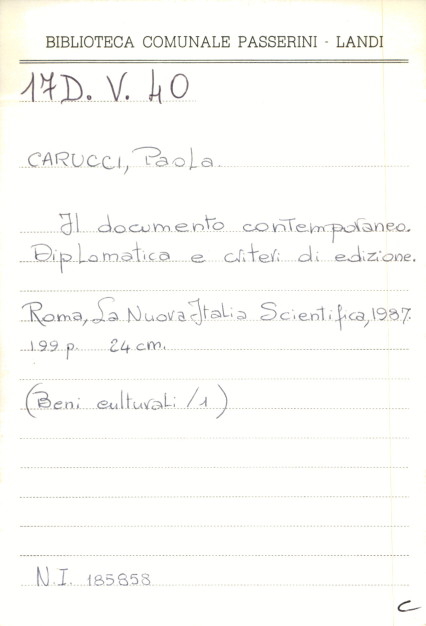 BIBLIOTECA COMUNALE PASSERINI - LANDI
17D. V. 40
CARUCCI, Paola.
Il documento contemporaneo.
Diplomatica e criteri di edizione.
Roma, La Nuova Italia Scientifica, 1987.
199 p. 24 cm.
(Beni culturali /1)
N.I. 185858
C